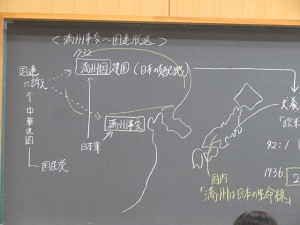 <満州事変〜国連脱退>
1932
満州国 建国 (日本の支配地)
国連
に訴え
↑
中華民国
国民党
日本軍
満州事変
国内
「満州は日本の生命線」
犬養
「欧米
42:1
1936.
2